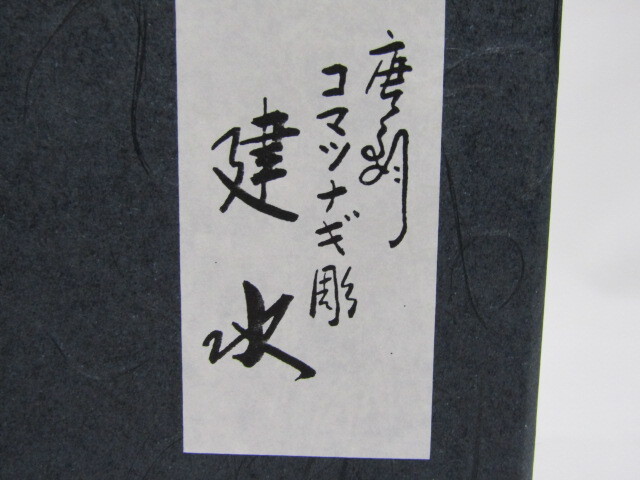 唐銅
コマツナギ彫
建水